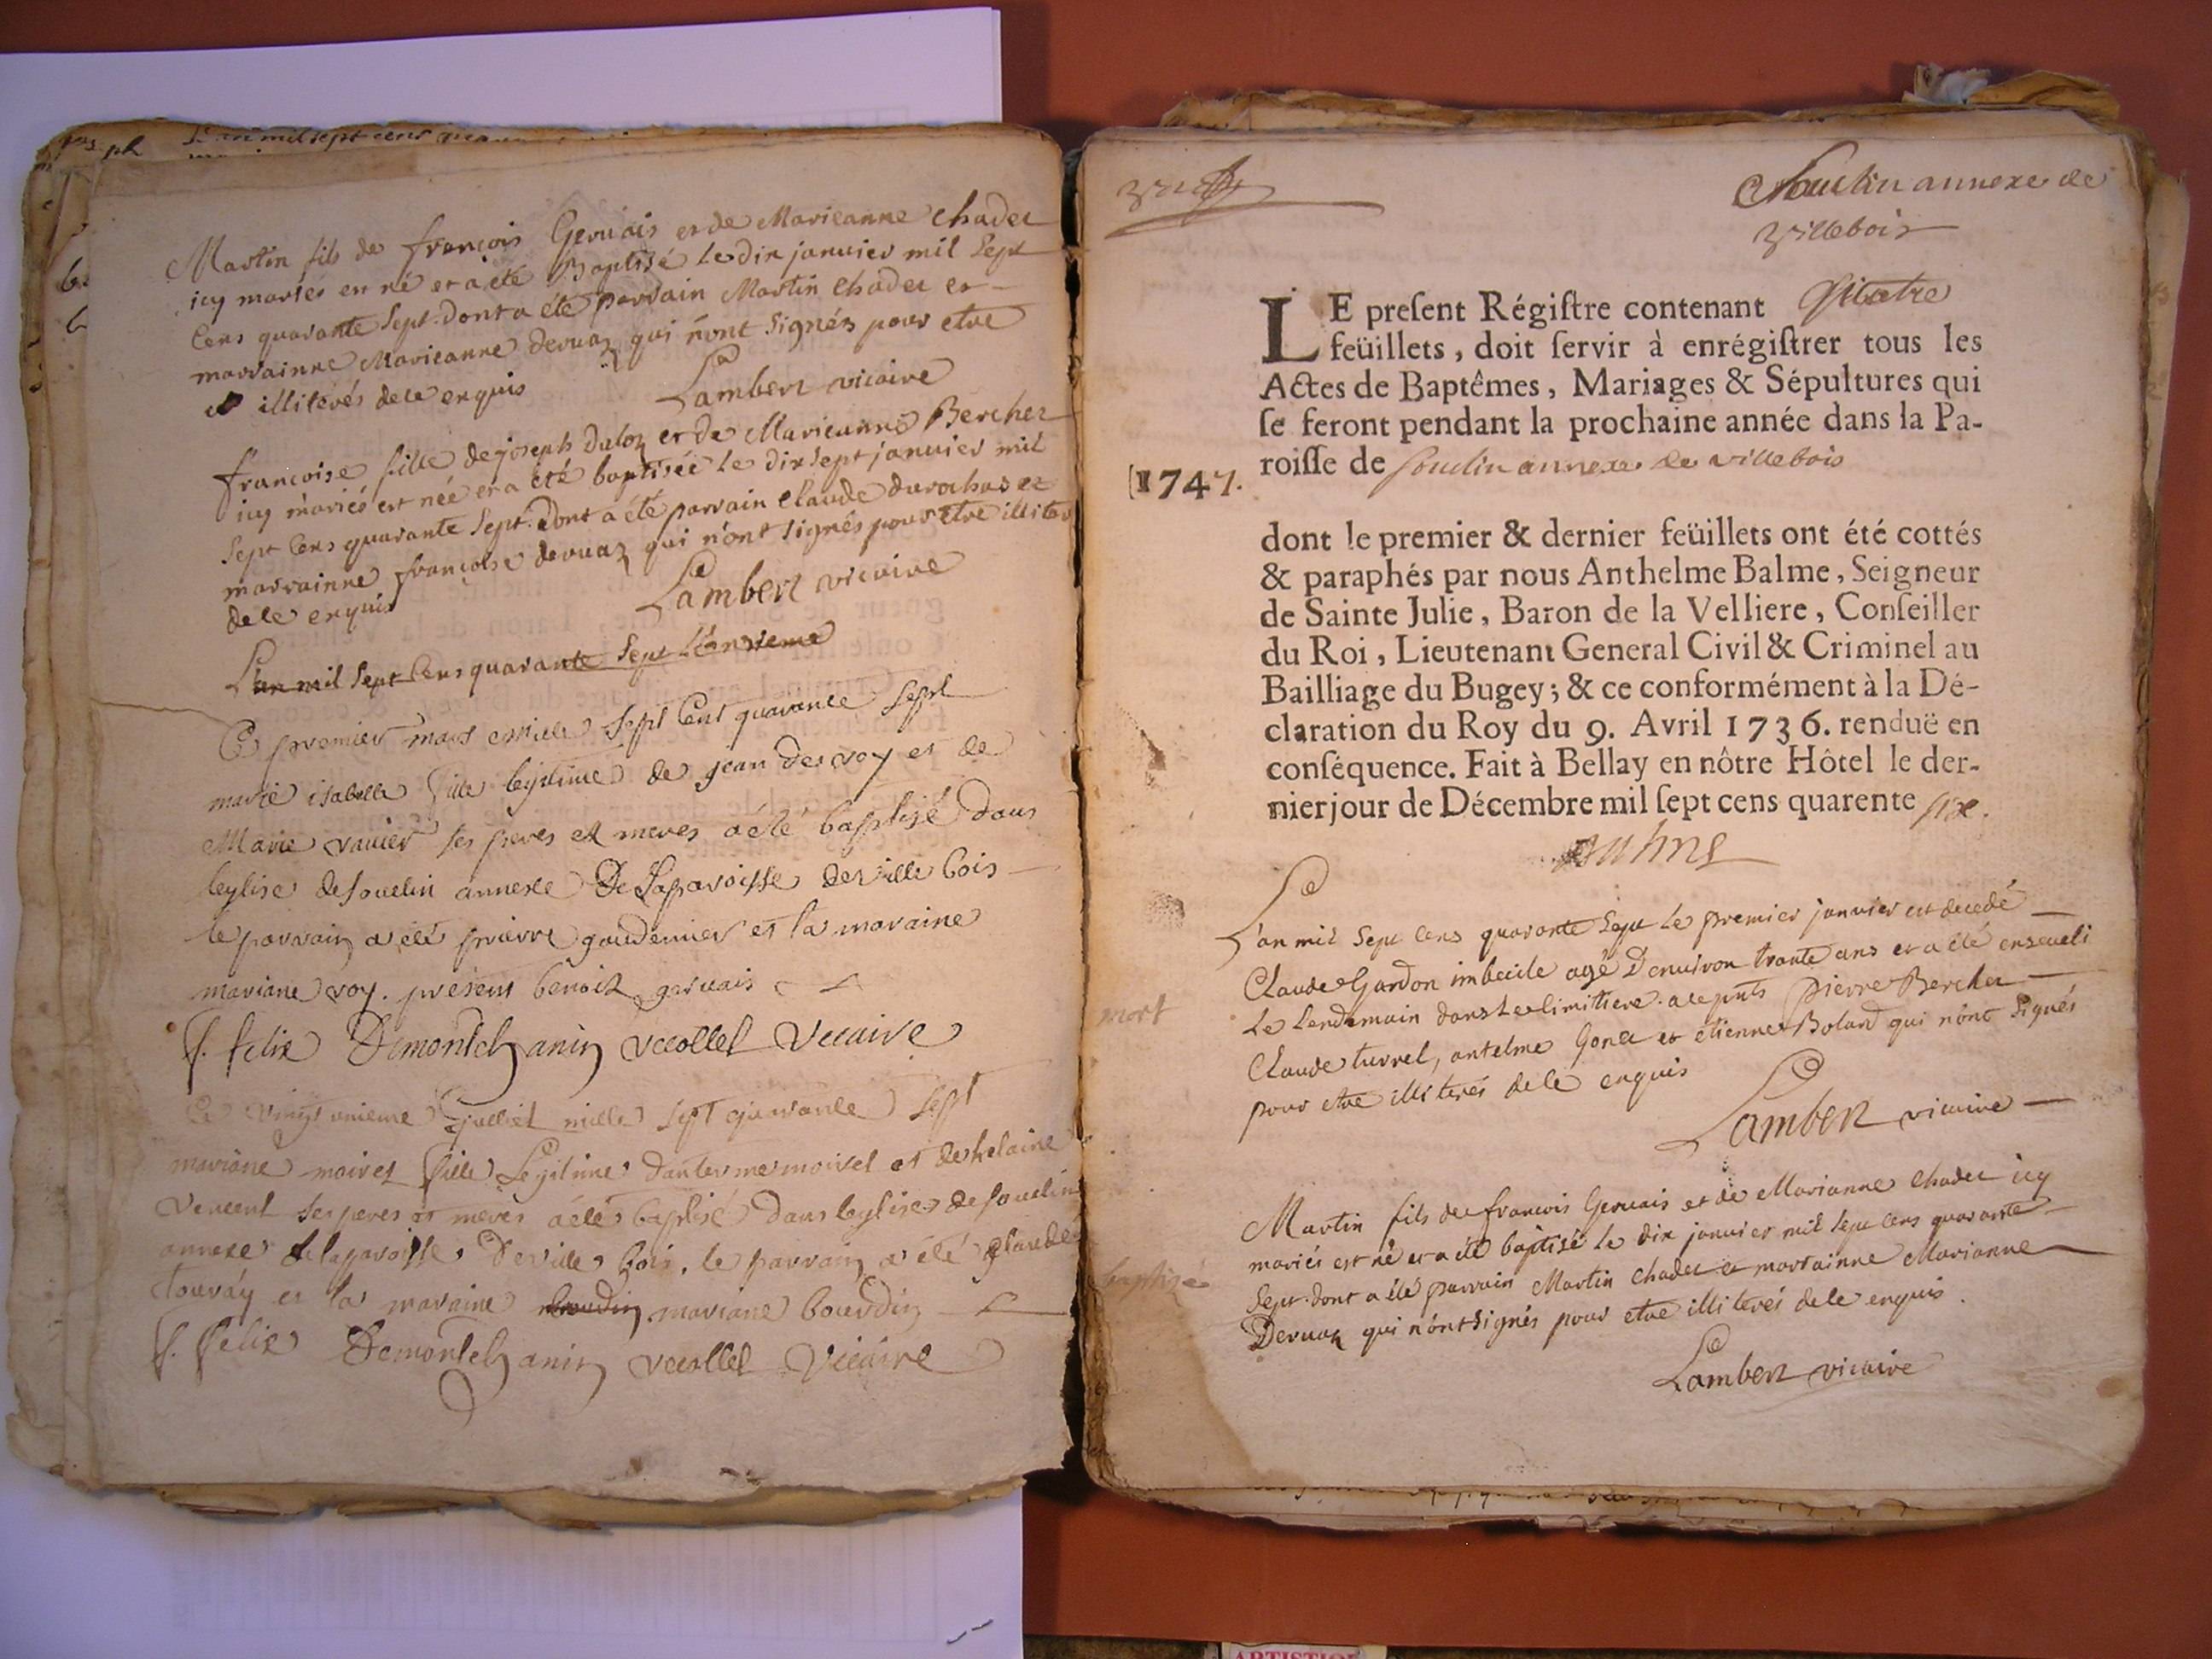 L'an mil sept cens
Martin fils de françois Gervais et de Marieanne Chader
icy mariés est né et a été Baptisé le dix januier mil Sept
Cens quarante Sept. dont a été parrain Martin Chader et
marrainne Marieanne deruaz qui n'ont Signés pour etre
illiterés de ce enquis
Lambert vicaire
françoise fille de joseph Duloz et de Marieanne Bercher
icy mariés est née et a été baptisée le dix sept januier mil
Sept Cens quarante Sept. dont a été parrain Claude durochas et
marrainne françoise deruaz qui n'ont signés pour etre illiter
de ce enquis
Lambert vicaire
L'an mil Sept Cens quarante Sept
Ce premier mars mille sept Cent quarante sept
marie isabelle fille legitime de jean des roy et de
Marie ses peres et meres a été baptisé dans
leglise de souclin annexe De Laparoisse de ville bois
le parrain a été pierre goudennier et la maraine
mariane roy. present benoit gervais
f. felix Demontchanin recollet vicaire
Ce vingt unieme julliet mille sept quarante sept
mariane moiret fille Legitime dantermemoiret et de helaine
vencent ses peres et meres a été baptisé dans leglise de souclin
annexe de laparoisse De ville bois. le parrain a été glaude
Touray et la maraine mariane bourdin
f. felix Demontchanin recollet vicaire
Souclin annexe de
Villebois
LE present Régistre contenant Quatre
feüillets, doit servir à enrégistrer tous les
Actes de Baptêmes, Mariages & Sépultures qui
se feront pendant la prochaine année dans la Pa-
roisse de souclin annexe de villebois
1747.
dont le premier & dernier feüillets ont été cottés
& paraphés par nous Anthelme Balme, Seigneur
de Sainte Julie, Baron de la Velliere, Conseiller
du Roi, Lieutenant General Civil & Criminel au
Bailliage du Bugey; & ce conformément à la Dé-
claration du Roy du 9. Avril 1736. renduë en
conséquence. Fait à Bellay en nôtre Hôtel le der-
nier jour de Décembre mil sept cens quarente six.
L'an mil Sept Cens quarante Sept le premier januier est decedé
Claude Gardon imbecile agé Denuiron trante ans et a été enseueli
mort
Le Lendemain dans le Cimitiere. a ce pnts pierre Bercher
Claude turrel, antelme Gonet et etienne Bolard qui n'ont signés
pour etre illiterés de ce enquis
Lambert vicaire
Martin fils de francois Geruais et de Marianne Chader icy
mariés est né et a été baptisé le dix januier mil sept cens quarante
baptisé
Sept. dont a été parrain Martin Chader et marrainne Marianne
Deruaz qui n'ont signés pour etre illiterés de ce enquis.
Lambert vicaire
ARTISTIQU